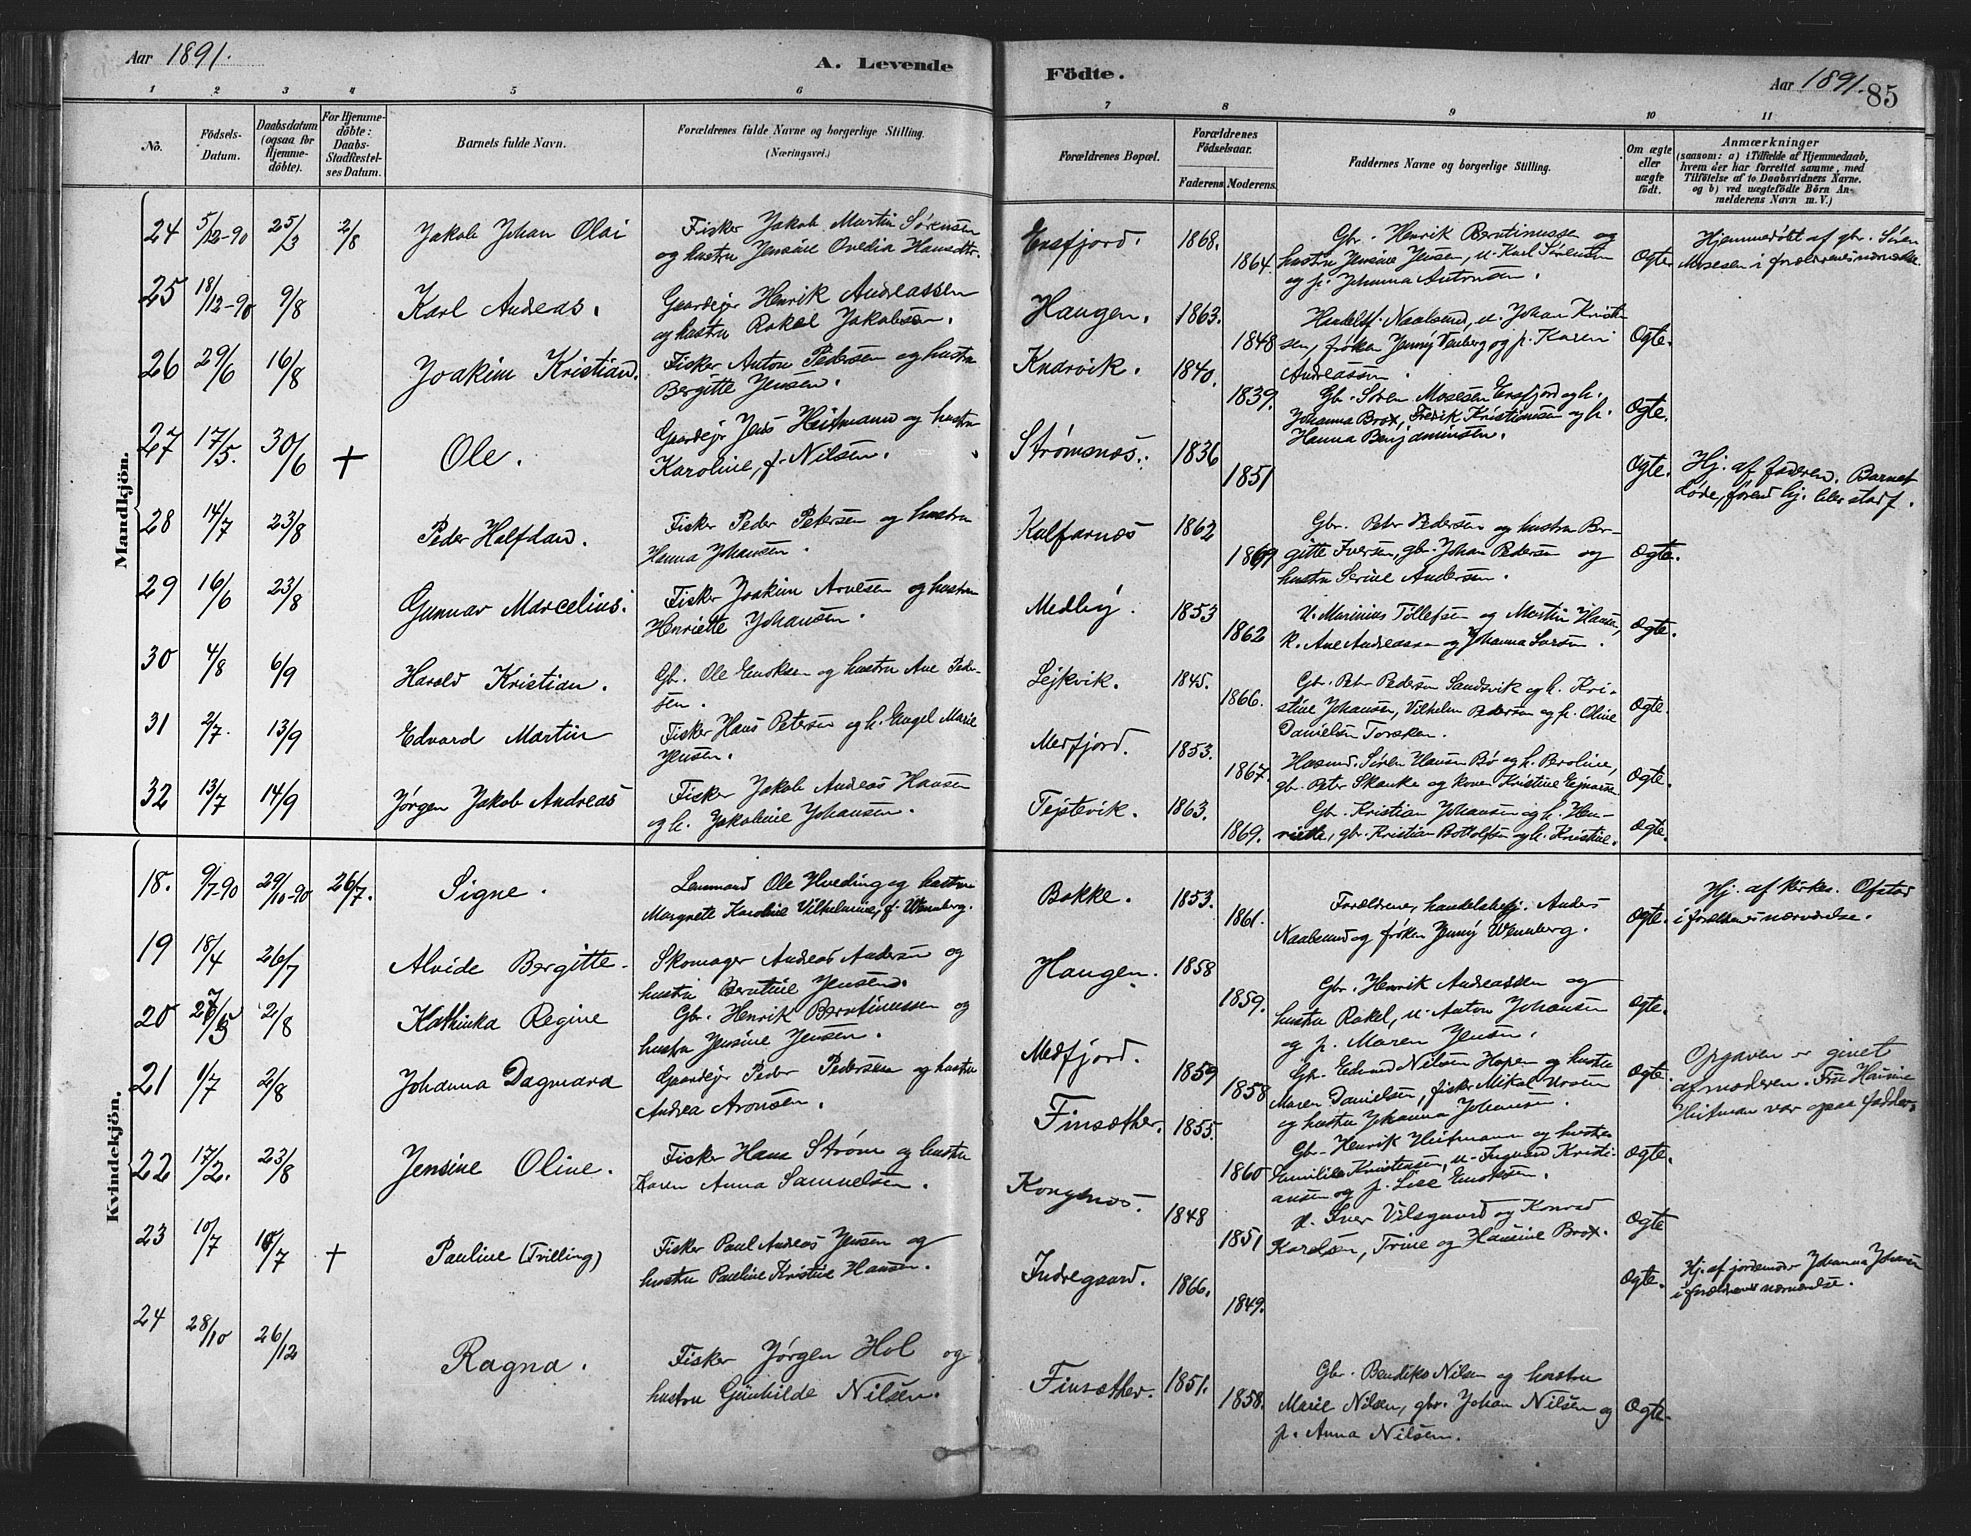 Aar 1891. A. Levende
1 2 3 4 5 6
No. Födsels-Datum. Daabsdatum (ogsaa for Hjemmedöbte). For Hjemmedöbte: Daabs-Stadfæstelses Datum. Barnets fulde Navn. Forældrenes fulde Navne og borgerlige Stilling. (Næringsvei.)
Mandkjön.
24 5/12-90 25/3 2/8 Jakob Johan Olai Fisker Jakob Martin Sørensen
og hustru Jensine Ovedia Hansdtr.
25 18/12-90 9/8 Karl Andreas. Gaardejer Henrik Andreassen
og hustru Rakel Jakobsen.
26 29/6 16/8 Joakim Kristian. Fisker Anton Pedersen og hustru
Bergitte Jensen.
27 17/5. 30/6 + Ole. Gaardejer Jens Heitmann og hustru
Karoline, f. Nilsen.
28 14/7 23/8 Peder Halfdan. Fisker Peder Petersen og hustru
Hanna Johansen.
29 16/6 23/8 Gunnar Marcelius. Fisker Joakim Arnesen og hustru
Henriette Johansen.
30 4/8 6/9 Harald Kristian. Gb. Ole Enoksen og hustru Ane Peder-
sen.
31 2/7. 13/9 Edvard Martin Fisker Hans Petersen og h. Engel Marie
Jensen.
32 13/7 14/9 Jørgen Jakob Andreas Fisker Jakob Andreas Hansen
og h. Jakobine Johansen.
Kvindekjön.
18. 9/7-90 29/10-90 26/7. Signe. Lensmand Ole Hveding og hustru
Margrete Karoline Vilhelmine, f. Wennberg.
19 18/4 26/7 Alvide Bergitte. Skomager Andreas Andersen og
hustru Berntine Jensen.
20 27/5 2/8 Kathinka Regine Gb. Henrik Berntinussen og
hustru Jensine Jensen.
21 1/7 2/8 Johanna Dagmara Gaardejer Peder Pedersen og hustru
Andrea Aronsen.
22 17/2. 23/8 Jensine Oline. Fisker Hans Strøm og hustru
Karen Anna Samuelsen.
23 10/7 /7 + Pauline (Tvilling) Fisker Paul Andreas Jensen og
hustru Pauline Kristine Hansen.
24 28/10 26/12 Ragna. Fisker Jørgen Hol og
hustru Gunhilde Nilsen.
Födte. Aar 1891. 85
7 8 9 10 11
Forældrenes Bopæl. Forældrenes Födselsaar. Faderens Moderens. Faddernes Navne og borgerlige Stilling. Om ægte eller uægte födt. Anmærkninger (saasom: a) i Tilfælde af Hjemmedaab, hvem der har forrettet samme, med Tilföielse af to Daabsvidners Navne. og b) ved uægtefödte Börn Anmelderens Navn m. V.)
Ersfjord. 1868. 1864. Gbr. Henrik Berntinussen og
hustru Jensine Jensen, u. Karl Sørensen
og p. Johanna Antonsen. Ægte. Hjemmedøbt af gbr. Søren
Mosesen i forældrenes nærværelse.
Haugen. 1863. 1848 Handelsf. Naalsund, u. Johan Kristen-
sen, frøken Jenny Venberg og p. Karen
Andreassen. Ægte.
Knarvik. 1840. 1839. Gb. Søren Mosesen Ersfjord og h.
Johanna Brox, Fredrik Kristiansen og h.
Hanna Benjaminsen. Ægte.
Strømsnæs. 1836 1851 Ægte. Hj. af faderen. Barnet
døde, førend hj. blev stadf.
Kalfarnæs 1862 1869 Gbr. Peter Pedersen og hustru Ber-
gitte Iversen, gbr. Johan Pedersen og
hustru Serine Andersen. Ægte.
Medby. 1853 1862 U. Marinius Tollefsen og Martin Hansen,
P. Ane Andreassen og Johanna Larsen. Ægte.
Lejkvik. 1845. 1866. Gbr. Petr Pedersen Sandsvik og h. Kri-
stine Johansen, Vilhelm Pedersen og h. Oline
Danielsen Torsken. Ægte.
Medfjord. 1853. 1867. Husmd. Søren Hansen Bø og h. Beroline,
gb. Peter Skanke og kone Kristine Ejnarsen Ægte.
Tejstevik. 1863. 1869. Gb. Kristian Johansen og h. Hen-
riette, gb. Kristian Bottolfsen og h. Kristine. Ægte.
Bakke. 1853. 1861. Forældrene, handelsbestj. Anders
Naalsund og frøken Jenny Wennberg. Ægte. Hj. af kirkes. Ofstad
i forældrenes nærværelse.
Haugen. 1858 1859. Gb. Henrik Andreassen og
hustru Rakel, u. Anton Johansen
og p. Maren Jensen. Ægte.
Medfjord. 1859 1858 Gb. Edvard Nilsen Hopen og hustru
Maren Danielsen, fisker Mikal Olsen
og hustru Johanna Johansen. Ægte. Opgaven er givet
af moderen. Fru Hansine
Heitman var ogsaa fadder.
Finsæther. 1855. 1860 Gb. Henrik Heitmann og hustru
Emilie Knutsen, u. Ingvard Kristi-
ansen og p. Lise Enoksen. Ægte.
Kongsnæs. 1848 1851 U. Iver Vilsgaard og Konrad
Karlsen, Trine og Hansine Brox. Ægte
Indregaard. 1866. 1849. Ægte. Hj. af jordemoder Johanna Johansen
i forældrenes nærværelse.
Finsæther. 1851. 1858. Gbr. Bendiks Nilsen og hustru
Marie Nilsen, gbr. Johan Nilsen og
p. Anna Nilsen. Ægte.